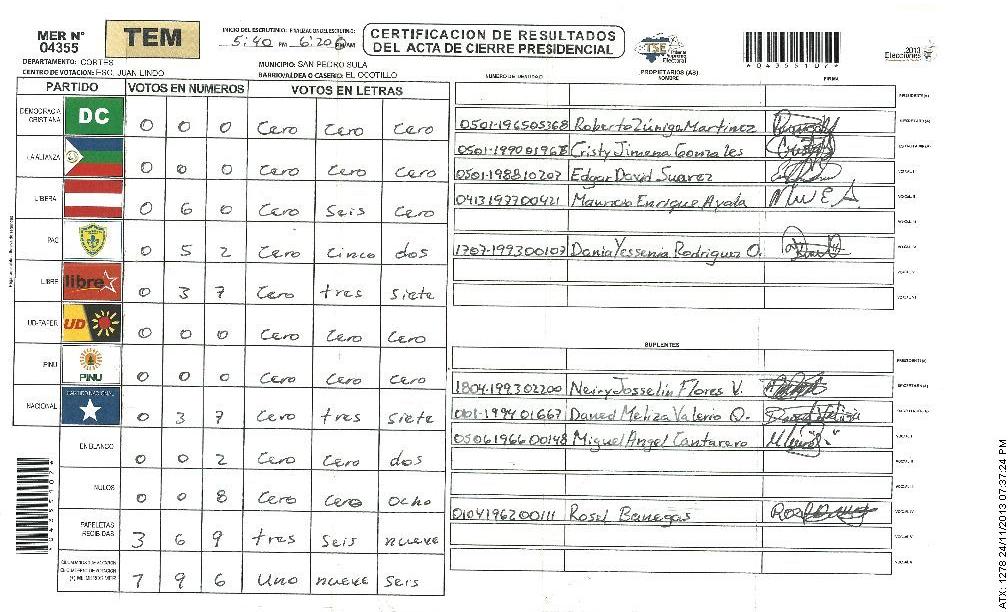 MER N° 04355
TEM
INICIO DEL ESCRUTINIO: FINALIZACION DEL ESCRUTINIO:
5:40 PM 6:20 PM AM
CERTIFICACION DE RESULTADOS
DEL ACTA DE CIERRE PRESIDENCIAL
TSE Tribunal Supremo Electoral
2013 Elecciones
DEPARTAMENTO: CORTES
MUNICIPIO: SAN PEDRO SULA
CENTRO DE VOTACION: ESC. JUAN LINDO
BARRIO/ALDEA O CASERIO: EL OCOTILLO
PARTIDO VOTOS EN NUMEROS VOTOS EN LETRAS
DEMOCRACIA CRISTIANA DC 0 0 0 Cero Cero Cero
LA ALIANZA 0 0 0 Cero Cero Cero
LIBERA 0 6 0 Cero Seis Cero
PAC 0 5 2 Cero Cinco dos
LIBRE libre 0 3 7 Cero tres siete
UD-FAPER UD 0 0 0 Cero Cero Cero
PINU PINU 0 0 0 Cero Cero Cero
NACIONAL PARTIDO NACIONAL 0 3 7 Cero tres siete
EN BLANCO 0 0 2 Cero Cero dos
NULOS 0 0 8 Cero Cero ocho
PAPELETAS RECIBIDAS 3 6 9 tres Seis nueve
(+) MIEMBROS MER 7 9 6 Uno nueve seis
NUMERO DE IDENTIDAD PROPIETARIOS (AS) NOMBRE FIRMA
PRESIDENTE(A)
0501-196505368 Roberto Zúniga Martinez SECRETARIO(A)
0501-199001968 Cristy Jimena Gonzales
0501-198810207 Edgar David Suarez VOCAL I
0413197700421 Mauricio Enrique Ayala VOCAL II
VOCAL III
1707-199300107 Dania Yessenia Rodriguez O. VOCAL IV
VOCAL V
VOCAL VI
SUPLENTES
PRESIDENTE(A)
1804-199302200 Neiry Josselin Flores V. SECRETARIO(A)
Daned Meliza Valerio O.
0506196600148 Miguel Angel Cantarero VOCAL I
VOCAL II
VOCAL III
0104196200111 Rosel Banegas VOCAL IV
VOCAL V
VOCAL VI
ATX: 1278 24/11/2013 07:37:24 PM